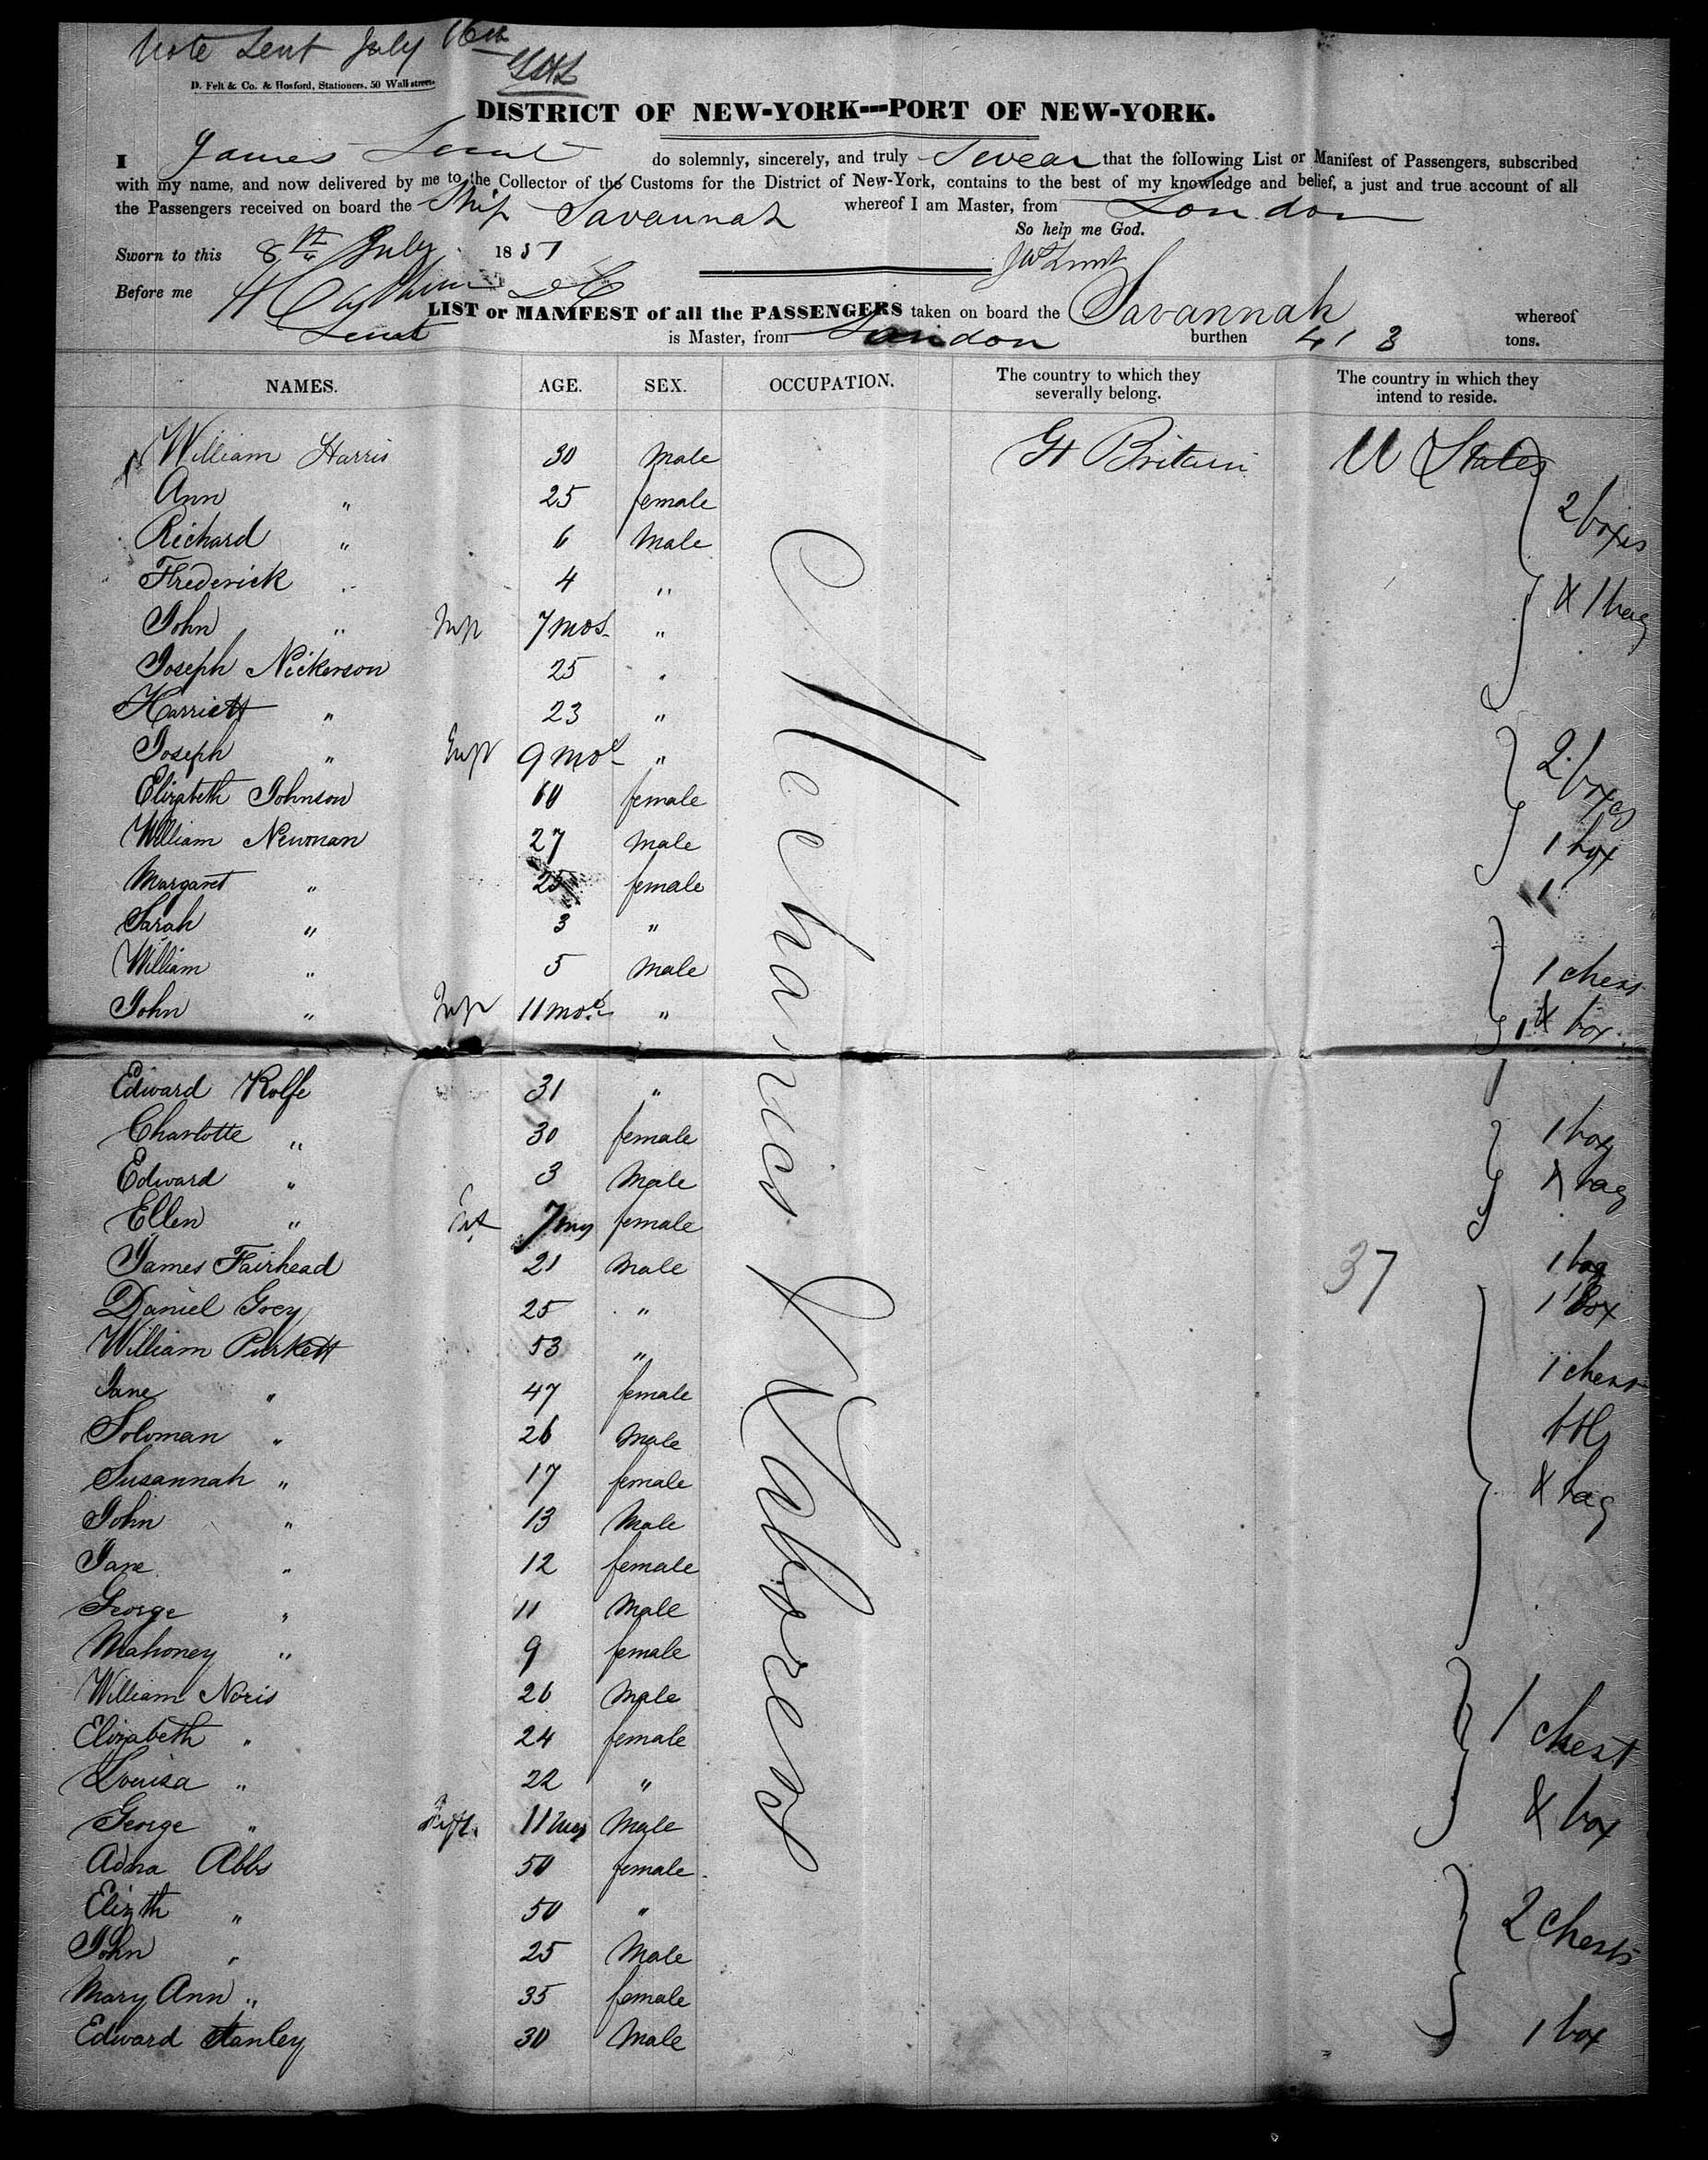 Note Sent July 16th
D. Felt & Co. & Hosford, Stationers, 50 Wall street.
DISTRICT OF NEW-YORK---PORT OF NEW-YORK.
I James do solemnly, sincerely, and truly Swear that the following List or Manifest of Passengers, subscribed
with my name, and now delivered by me to the Collector of the Customs for the District of New-York, contains to the best of my knowledge and belief, a just and true account of all
the Passengers received on board the Ship Savannah whereof I am Master, from London
So help me God.
Sworn to this 8th July 18
Before me
LIST or MANIFEST of all the PASSENGERS taken on board the Savannah whereof
is Master, from London burthen 413 tons.
NAMES. AGE. SEX. OCCUPATION. The country to which they severally belong. The country in which they intend to reside.
William Harris 30 Male Gt Britain U States
Ann " 25 female 2 boxes
Richard " 6 Male
Frederick " 4 " & 1 bag
John " Inf 7 mos "
Joseph Nickerson 25 "
Harriett " 23 "
Joseph " Inf 9 mos " 2 boxes
Elizabeth Johnson 60 female
William Newman 27 Male 1 box
Margaret " 25 female 1
Sarah " 3 "
William " 5 Male 1 chest
John " Inf 11 mos " & box
Edward Rolfe 31 "
Charlotte " 30 female 1 box
Edward " 3 Male & bag
Ellen " Inf 7 mos female
James Fairhead 21 Male 1 bag
Daniel Grey 25 " 1 Box
William Purkett 53 "
Jane " 47 female 1 chest
Soloman " 26 Male bbl
Susannah " 17 female & bag
John " 13 Male
Jane " 12 female
George " 11 Male
Mahoney " 9 female
William Noris 26 Male
Elizabeth " 24 female 1 chest
Louisa " 22 "
George " Inft. 11 mos Male & box
Adna Abbs 50 female
Elizth " 50 " 2 chests
John " 25 Male
Mary Ann " 35 female
Edward Stanley 30 Male 1 box
Mechanics & Laborers
37